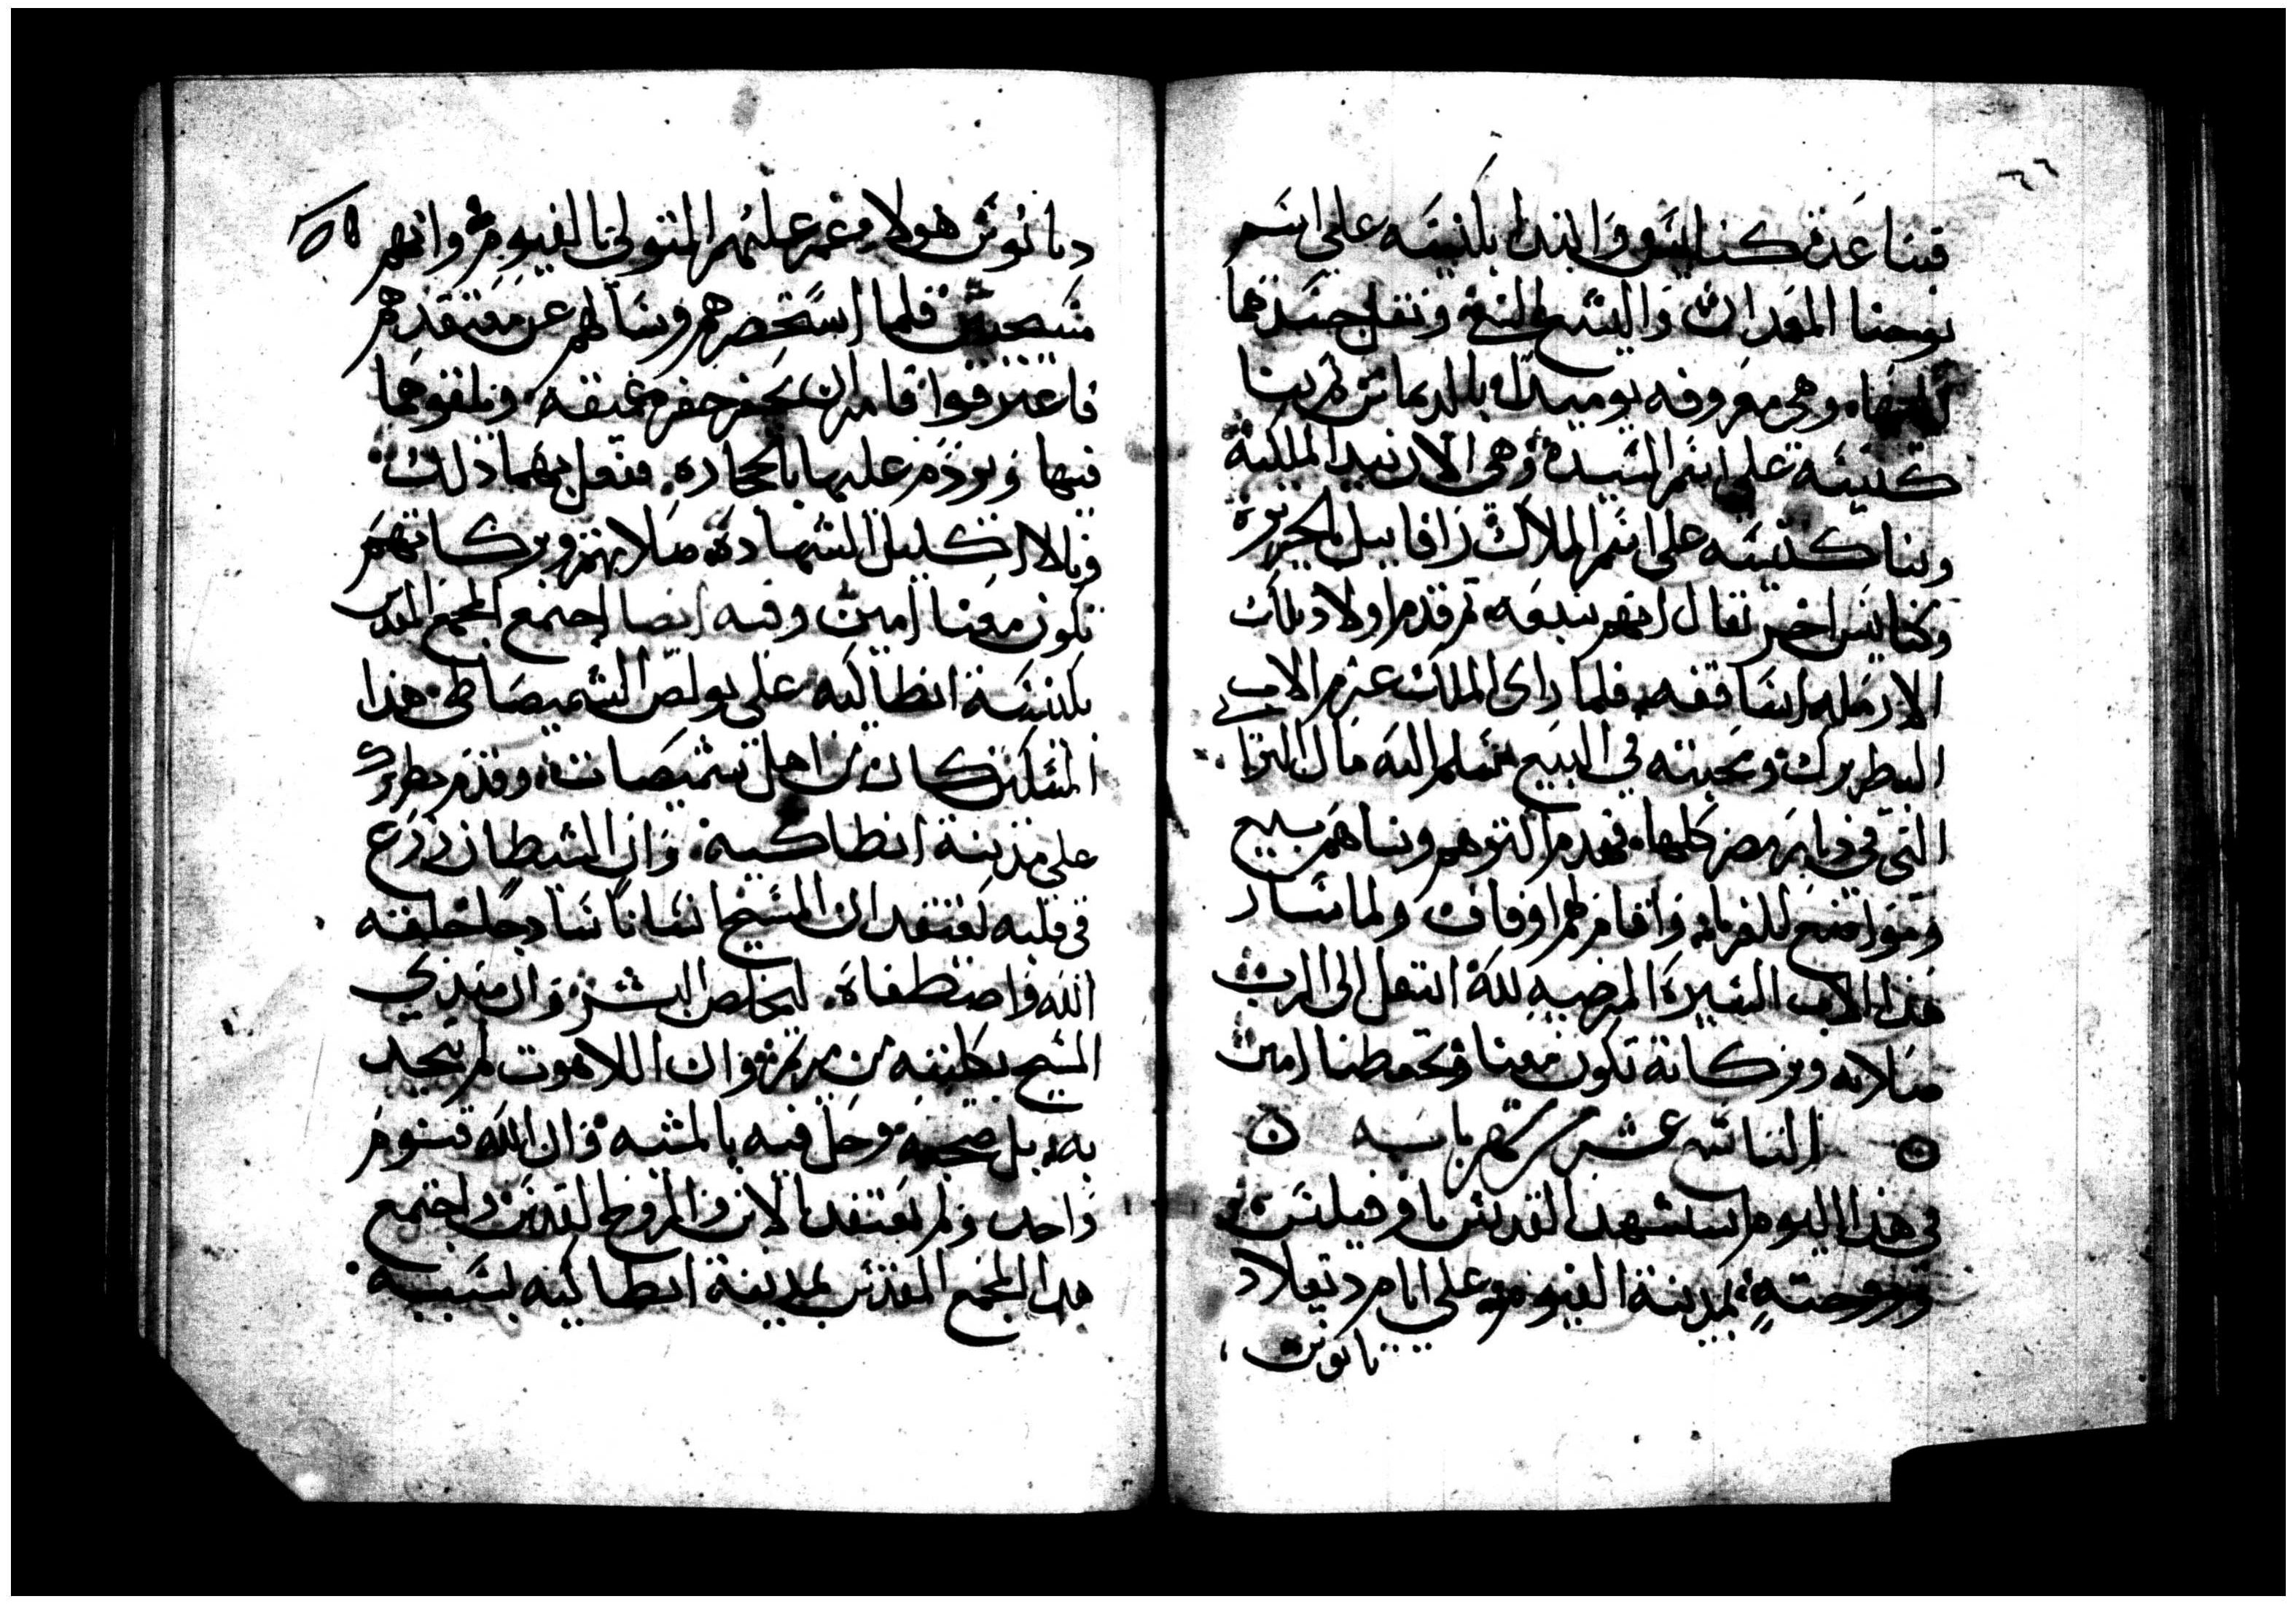 ٦٦
فبنا عدة كنايس وابتدا بكنيسه على اسم
يوحنا المعمدان واليشع النبي ونقل جسدهما
اليها وهي معروفه يوميدٍ بالديماس ثم بنا
كنيسه على اسم السيدة وهي الان بيد الملكية
وبنا كنيسه على اسم الملاك رافاييل بالجزيرة
وكنايس اخر يقال انهم سبعه ثم قدم اولاد تلك
الارمله اساقفه فلما راى الملك عزم الاب
البطريرك ومحبته في البيع سلم اليه مال البرابي
التي في ديار مصر كلها فهدم اكثرهم وبناهم بيع
ومواضع للغربا واقام لهم اوقاف ولما سار
هذا الاب السيرة المرضيه لله انتقل الى الرب
صلاته وبركاته تكون معنا وتحفظنا امين
التاسع عشر من شهر بابه
في هذا اليوم استشهد القديس تاوفيلس
وزوجته بمدينة الفيوم على ايام ديقلاد
يانوس
ديانوس هولا غمز عليهم المتولي بالفيوم وانهم
مسيحيين فلما استحضرهم وسالهم عن معتقدهم
فاعترفوا فامر ان يحفر حفره عميقه ويلقوهما
فيها ويردم عليها بالحجاره ففعل بهما ذلك
ونالا اكليل الشهادة صلاتهم وبركاتهم
تكون معنا امين وفيه ايضا اجتمع المجمع المقدس
بكنيسة انطاكيه على بولص الشميصاطي هذا
المسكين كان من اهل شميصات وقدم بطريرك
على مدينة انطاكيه وان الشيطان زرع
في قلبه يعتقد ان المسيح انسانا سادجا خلقه
الله واصطفاه ليخلص البشر وان مبتدي
المسيح بكليته من مريم وان اللاهوت لم يتحد
به بل صحبه وحل فيه بالمشيه وان الله قنوم
واحد ولم يعتقد بالابن والروح القدس واجتمع
هدا المجمع المقدس بمدينة انطاكيه بسببه